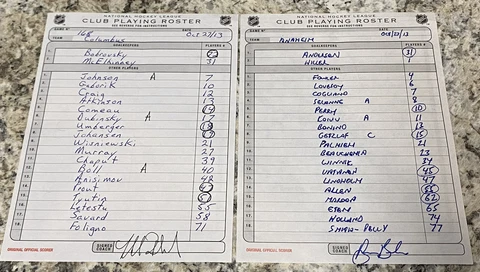 NATIONAL HOCKEY LEAGUE
CLUB PLAYING ROSTER
SEE REVERSE FOR INSTRUCTIONS
GAME Nº
168
Oct 27/13
TEAM
Columbus
GOALKEEPERS
PLAYERS #
Bobrovsky
McElhinney 31
OTHER PLAYERS
PLAYERS #
Johnson A 7
Gaborik 10
Craig 12
Atkinson 13
Comeau 14
Dubinsky A 17
Umberger 18
Johansen
Wisniewski 21
Murray 27
Chaput 39
Boll A 40
Anisimov 42
Prout
Tyutin
Letestu 55
Savard 58
Foligno 71
ORIGINAL: OFFICIAL SCORER
SIGNED COACH
NATIONAL HOCKEY LEAGUE
CLUB PLAYING ROSTER
SEE REVERSE FOR INSTRUCTIONS
GAME Nº
TEAM
ANAHEIM
GOALKEEPERS
PLAYERS #
ANDERSEN 31
HILLER 1
OTHER PLAYERS
PLAYERS #
FOWLER 4
LOVEJOY 6
COGLIANO 7
SELANNE A 8
PERRY 10
KOIVU A 11
BONINO 13
GETZLAF C 15
PALMIERI 21
BEAUCHEMIN 23
WINNIK 34
VATANEN 45
LINDHOLM 47
ALLEN 55
MAROON 62
ETEM 65
HOLLAND 74
SMITH-PELLY 77
ORIGINAL: OFFICIAL SCORER
SIGNED COACH